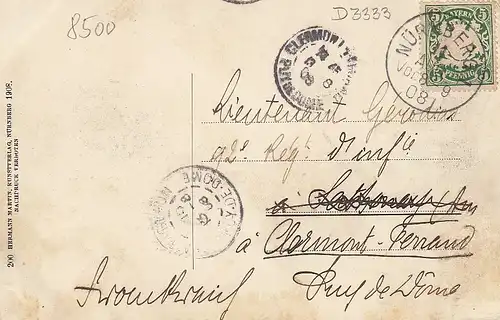 8500
D3333
5 BAYERN 5
PFENNIG
NÜRNBERG
08
CLERMONT-FERRAND
PUY-DE-DOME
08
Lieutenant
92e Regt d'infie
à
à Clermont-Ferrand
Frankreich Puy de Dôme
PUY-DE-DOME
200 HERMANN MARTIN, KUNSTVERLAG, NÜRNBERG 1908.
NACHDRUCK VERBOTEN